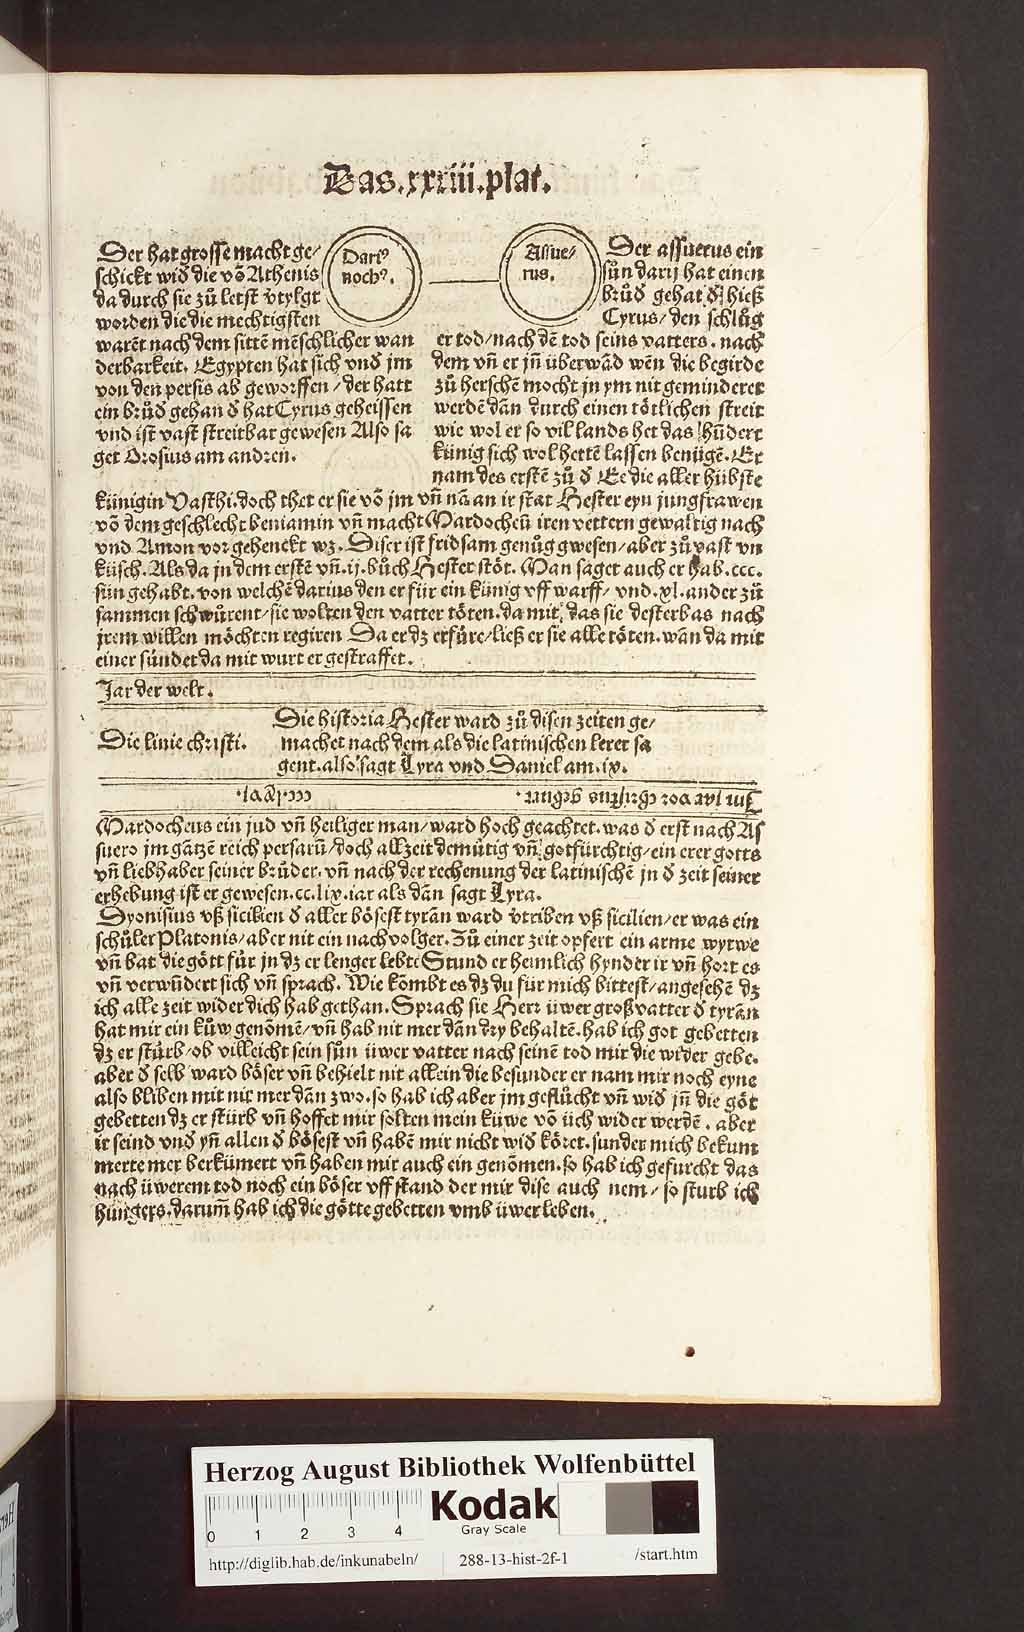 Das.xxxiii.plat.
Der hat grosse macht ge/
schickt wid̄ die võ Athenis
da durch sie zů letst vtylgt
worden die die mechtigsten
warẽt nach dem sittẽ mẽschlicher wan
derbarkeit. Egypten hat sich vnd jm
von den persis ab geworffen/der hatt
ein brůd̄ gehan d̄ hat Cyrus geheissen
vnd ist vast streitbar gewesen Also sa
get Orosius am andren.
Dariꝰ
nochꝰ.
Assue/
rus.
Der assuerus ein
sůn darij hat einen
brůd̄ gehat d̄ hieß
Cyrus/den schlůg
er tod/nach dẽ tod seins vatters. nach
dem vñ er jñ überwãd wẽn die begirde
zů herschẽ mocht jn ym nit geminderet
werdẽ dãn durch einen tötlichen streit
wie wol er so vil lands het das hũdert
künig sich wol hettẽ lassen benügẽ. Er
nam des erstẽ zů d̄ Ee die aller hübste
künigin Vasthi.doch thet er sie võ jm vñ nã an ir stat Hester eyn jungfrawen
võ dem geschlecht beniamin vñ macht Mardocheũ iren vettern gewaltig nach
vnd Amon vor gehenckt wz. Diser ist fridsam genůg gwesen/aber zů vast vn
küsch. Als da jn dem erstẽ vñ.ij.bůch Hester stöt. Man saget auch er hab.ccc.
sün gehabt. von welchẽ darius den er für ein künig vff warff/ vnd.xl.ander zů
sammen schwůrent/sie wolten den vatter töten.da mit das sie desterbas nach
jrem willen möchten regiren Da er dz erfůre/ließ er sie alle töten. wan da mit
einer sündet da mit wurt er gestraffet.
Jar der welt.
Die linie christi.
Die historia Hester ward zů disen zeiten ge/
machet nach dem als die latinischen lerer sa
gent.also sagt Lyra vnd Daniel am.ix.
Jm jar vor christus geburt. ccc.lxvi.
Mardocheus ein jud vñ heiliger man/ward hoch geachtet.was d̄ erst nach As
suero jm gãtzẽ reich persarũ/doch allzeit demütig vñ gotfürchtig/ein erer gotts
vñ liebhaber seiner brůder.vñ nach der rechenung der latinischẽ jn d̄ zeit seiner
erhebung ist er gewesen.cc.lix.iar als dãn sagt Lyra.
Dyonisius vß sicilien d̄ aller bösest tyrãn ward vtriben vß sicilien/er was ein
schůler Platonis/aber nit ein nachvolger. Zů einer zeit opfert ein arme wytwe
vñ bat die gött für jn dz er lenger lebte Stund er heimlich hynder ir vñ hort es
vñ verwũdert sich vñ sprach. Wie kõmbt es dz du für mich bittest/angesehẽ dz
ich alle zeit wider dich hab gethan. Sprach sie Herr üwer großvatter d̄ tyrãn
hat mir ein kůw genõmẽ/vñ hab nit mer dãn dry behaltẽ.hab ich got gebetten
dz er stürb/ob villeicht sein sůn üwer vatter nach seinẽ tod mir die wider gebe.
aber d̄ selb ward böser vñ behielt nit allein die besunder er nam mir noch eyne
also bliben mit nit mer dãn zwo.so hab ich aber jm geflůcht vñ wid̄ jñ die göt
gebetten dz er stürb vñ hoffet mir solten mein küwe võ üch wider werdẽ. aber
ir seind vnd yñ allen d̄ bösest vñ habẽ mir nicht wid̄ köret.sunder mich bekum
merte mer berkümert vñ haben mir auch ein genõmen.so hab ich gefurcht das
nach üwerem tod noch ein böser vff stand der mir dise auch nem/ so sturb ich
hungers.darum̃ hab ich die götte gebetten vmb üwer leben.
Herzog August Bibliothek Wolfenbüttel
0 1 2 3 4
Kodak
Gray Scale
http://diglib.hab.de/inkunabeln/ 288-13-hist-2f-1 /start.htm